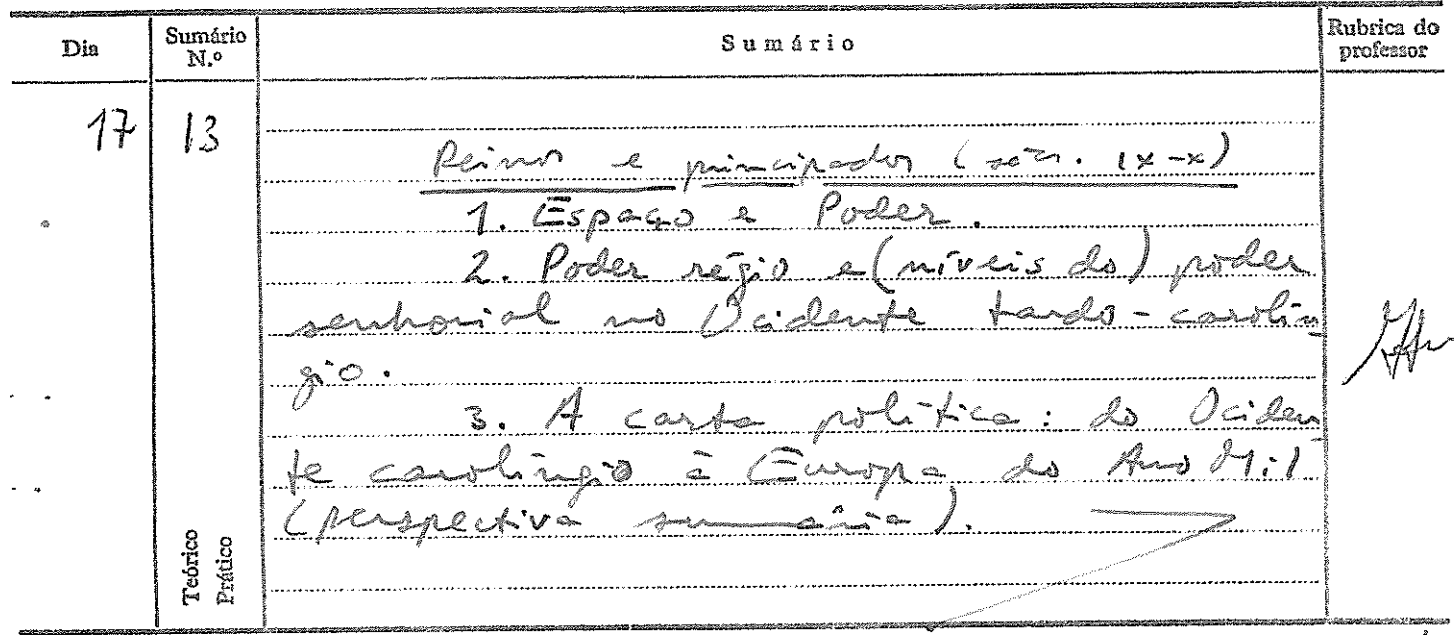 Dia
Sumário
N.º
Sumário
Rubrica do
professor
17
13
Reinos e principados (sécs. IX-X)
1. Espaço e Poder.
2. Poder régio e (níveis do) poder
senhorial no Ocidente tardo-carolín
gio.
3. A carta política: do Ociden
te carolíngio à Europa do Ano Mil
(perspectiva sumária).
Teórico
Prático